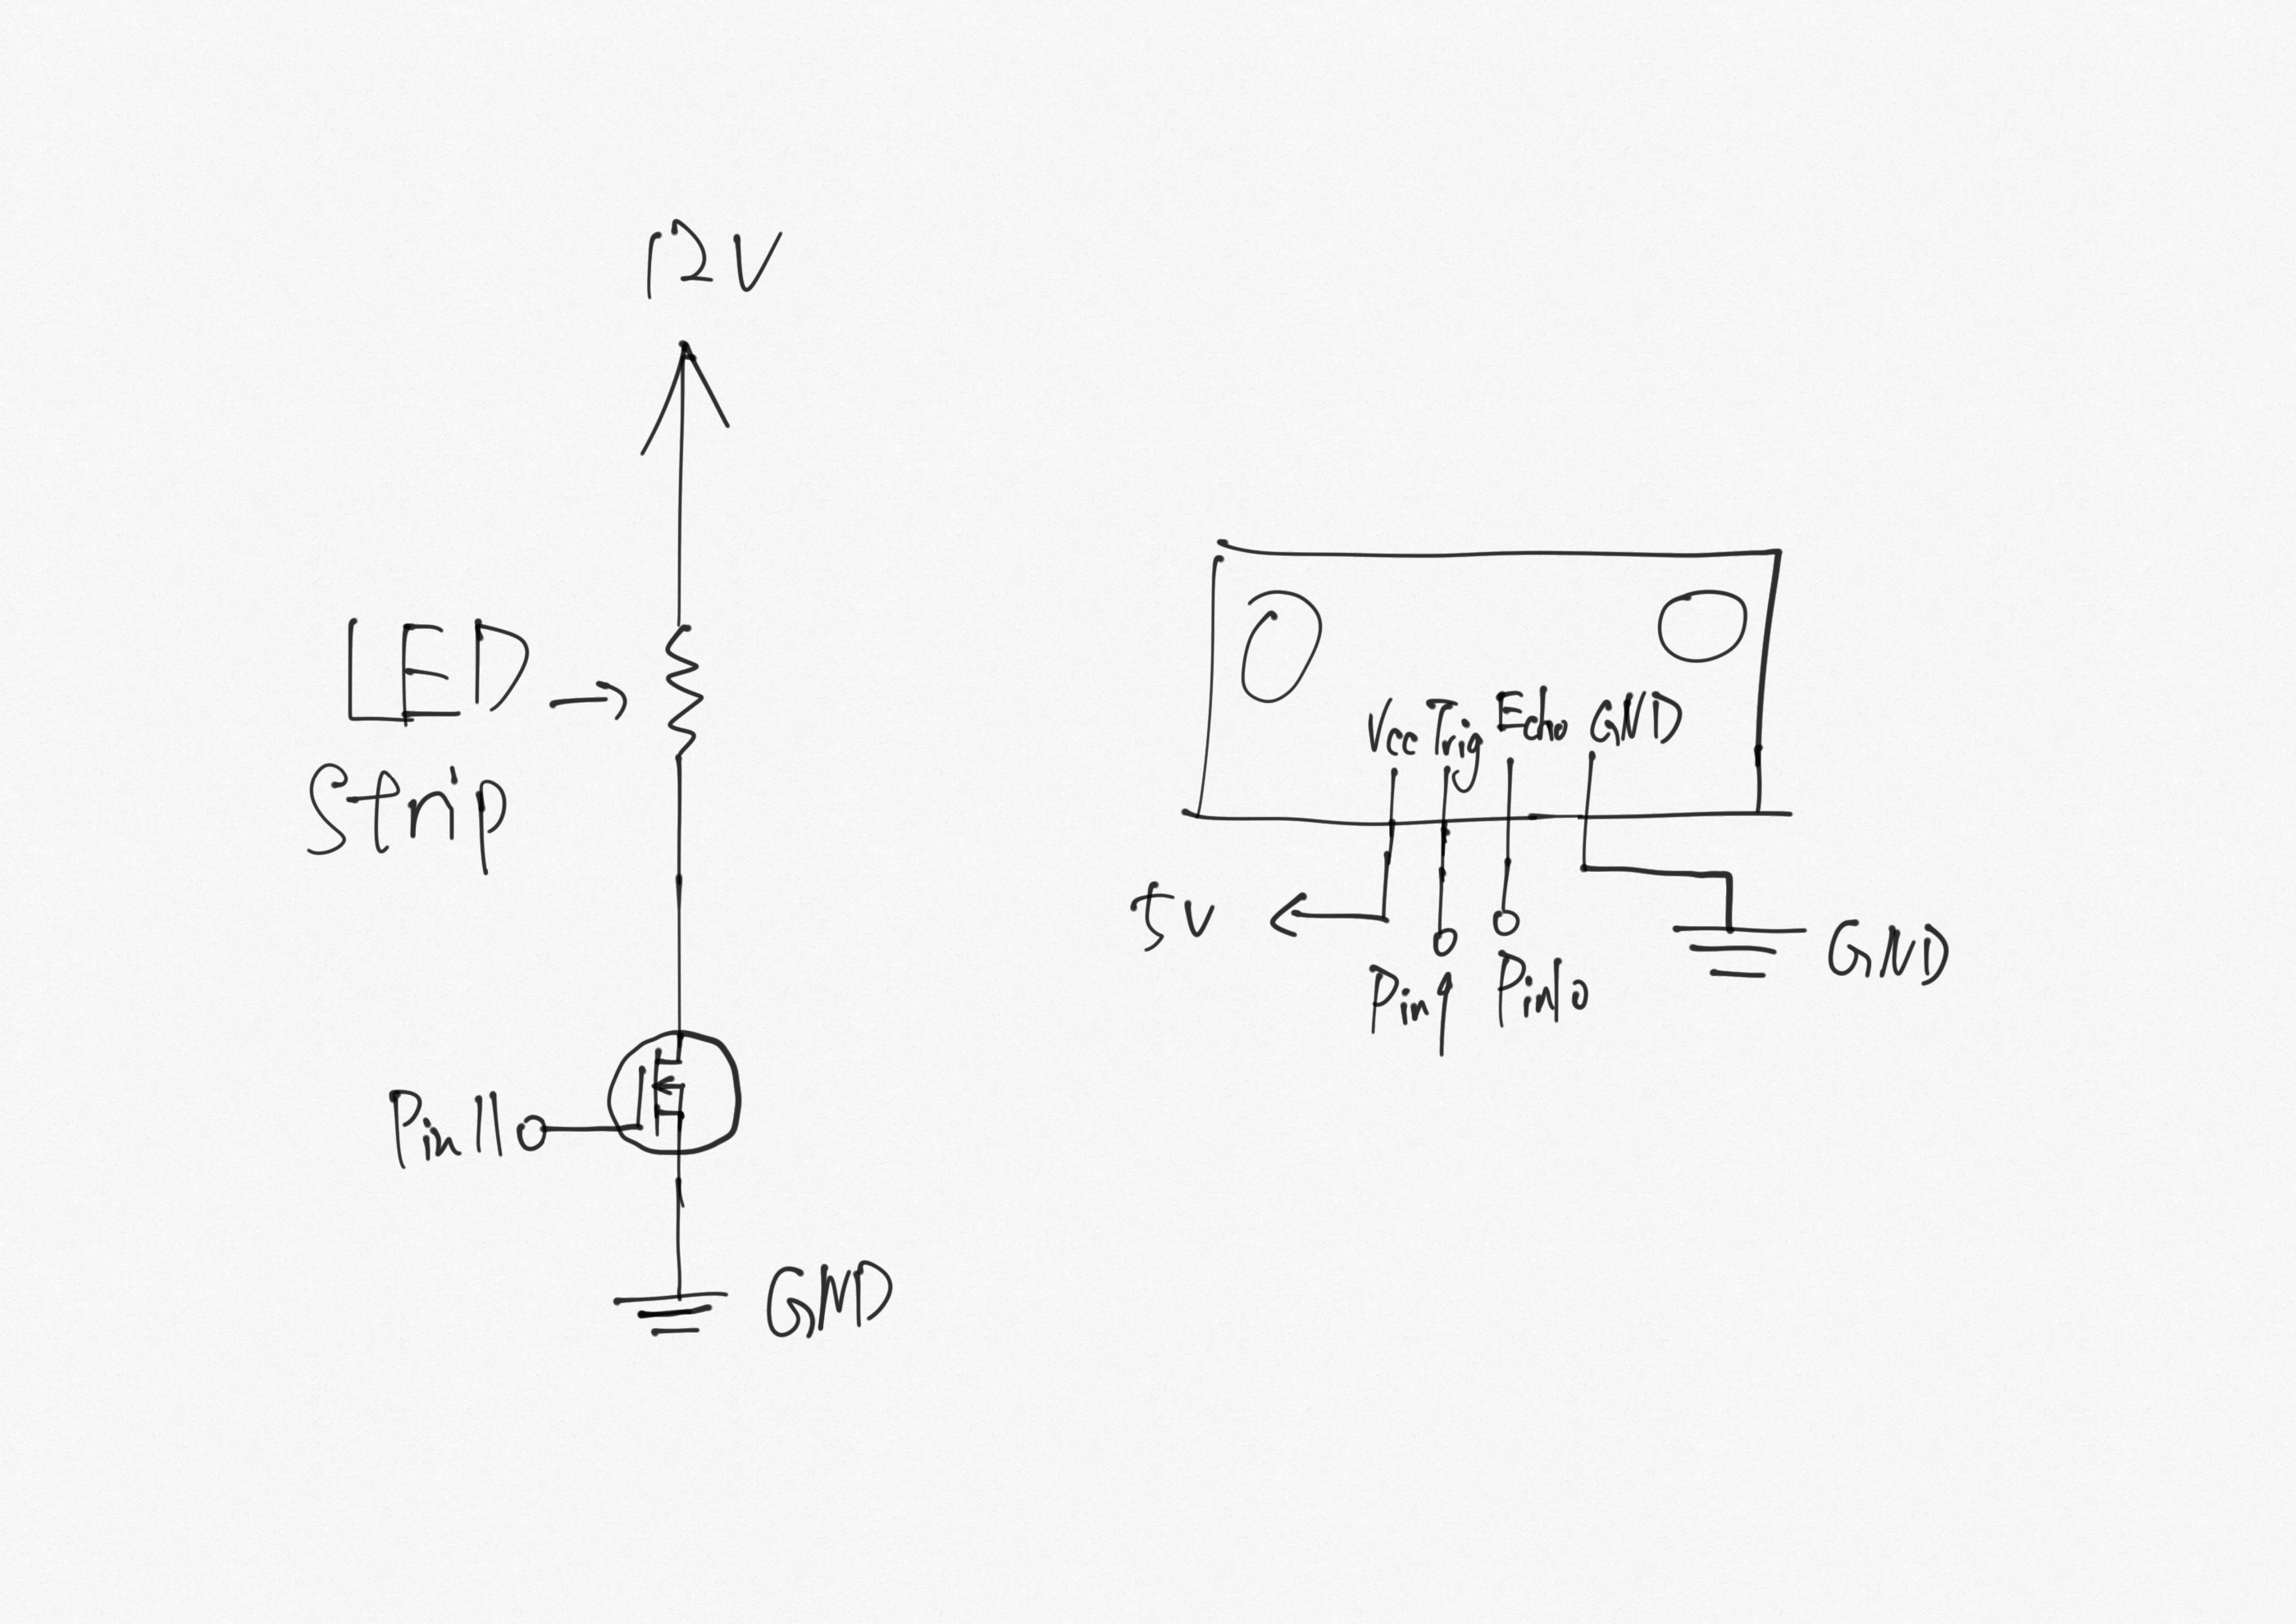 12V
LED
Strip
Pin11
GND
Vcc Trig Echo GND
5V
Pin9 Pin10
GND